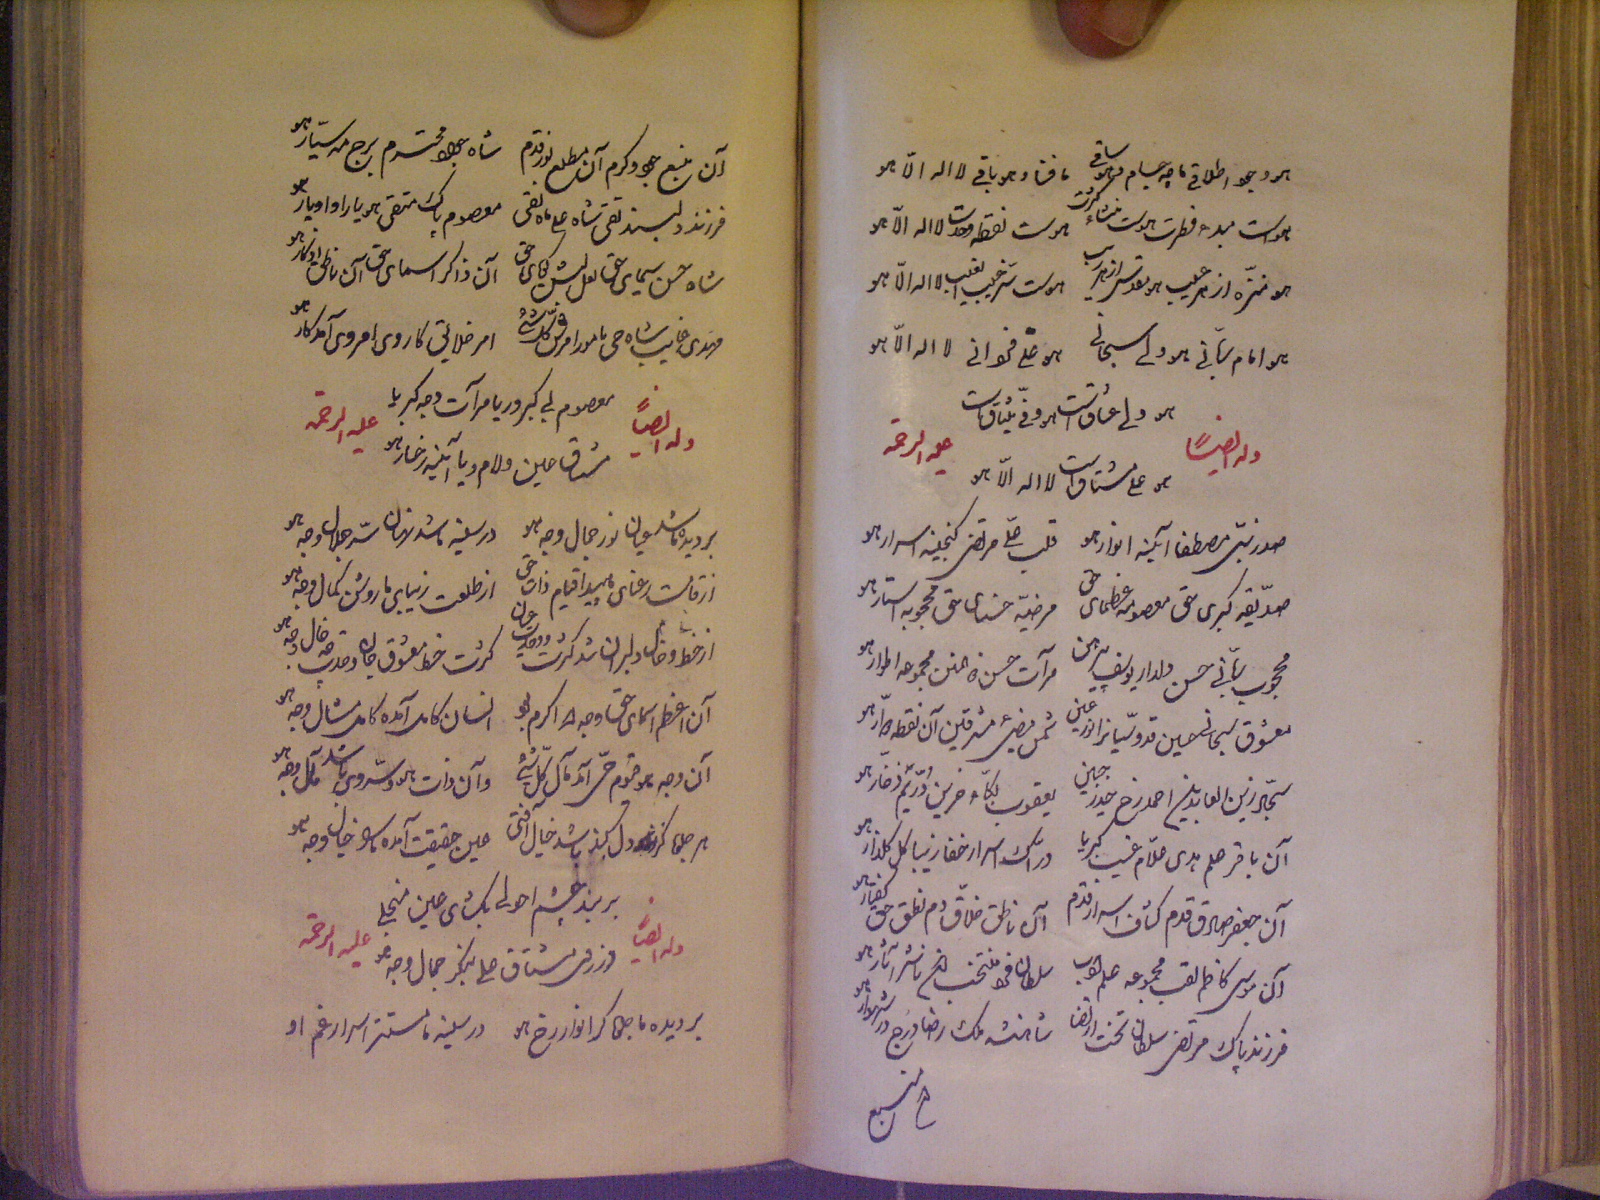 هو وجود اطلاقی ما چه جام و هو ساقی ما فنا و هو باقی لا اله الّا هو
هوست مبدء فطرت هوست منشاء کثرت هوست نقطه وحدت لا اله الّا هو
هو منزّه از هر عیب هو مقدس از هر ریب هوست سرّ غیب الغیب لا اله الّا هو
هو امام ربّانی هو ولی سبحانی هو علی لا اله الّا هو
هو ولی عشاقست هو
وله ایضاً علیه الرحمة
هو علی مشتاقست لا اله الّا هو
صدر نبی مصطفا آئینه انوار هو قلب علی مرتضی گنجینه اسرار هو
صدّیقه کبری حق معصومه عظمای حق مرضیّه حسنای حق محجوبه استار هو
محبوب ربّانی حسن دلدار یوسف پیرهن مرآت حسن ذوالمنن مجموعه اطوار هو
معشوق سبحانی حسین قدوسیانرا نور عین شمس مضیء مشرقین آن نقطه هو
سجّاد زین العابدین احمد رخ حیدر جبین یعقوب بکّاء حزین درّ یتیم ذخّار هو
آن باقر علم هدی علّام غیب کبریا درّاک اسرار خفا زیبا گل گلذار هو
آن جعفر صادق قدم کشاف اسرار قدم آن ناطق خلّاق دم نطق حق گفتار هو
آن موسی کاظم لقب مجموعه علم و ادب سلطان منتخب ناشر آثار هو
فرزند پاک مرتضی سلطان تخت ارتضا شاهنشه ملک رضا درج در شهوار هو
آن منبع
آن منبع جود و کرم آن مطلع نور قدم شاه جواد محترم برج مه سیّار هو
فرزند دلبند تقی شاه علی ماه نقی معصوم پاک متقی هو یار او او یار هو
شاه حسن سیمای حق لعل لبش گویای حق آن ذاکر اسمای حق آن ناطق اذکار هو
مهدی غایب شاه حی مامور امرش کل شئ امر خلائق کار وی امر وی آمد کار هو
معصوم بی کبر و ریا مرآت وجه کبریا
وله ایضاً علیه الرحمة
مشتاق عین و لام و یا آئینه رخسار هو
بر دیده ما شد عیان نور جمال وجه هو در سینه ما شد نهان سرّ جلال وجه هو
از قامت رعنای ما پیدا قیام ذات حق از طلعت زیبای ما روشن کمال وجه هو
از خط و خال دلبران شد کثرت و وحدت عیان کثرت خط معشوق جان وحدت چه خال وجه هو
آن اعظم اسمای حق وجه اکرم انسان کامل آمده کامل مثال وجه هو
آن وجه هو قیوم حی آمد مآل کل شئ وآن ذات هو سرّ وی باشد مآل وجه هو
هر جلوه کز دل بگذرد باشد خیال آفتی عین حقیقت آمده ما را خیال وجه هو
بر بند چشم احولی بگشای عین منجلی
وله ایضاً علیه الرحمة
وز رق مشتاق علی بنگر جمال وجه هو
بر دیده ما جلوه‌گر انوار رخ هو در سینه ما مستتر اسرار غم او